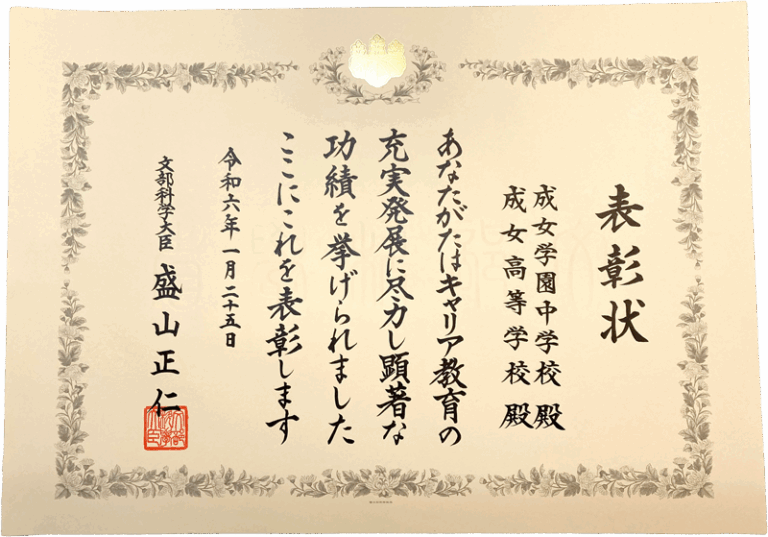 表彰状
成女学園中学校殿
成女高等学校殿
あなたがたはキャリア教育の
充実発展に尽力し顕著な
功績を挙げられました
ここにこれを表彰します
令和六年一月二十五日
文部科学大臣 盛山正仁